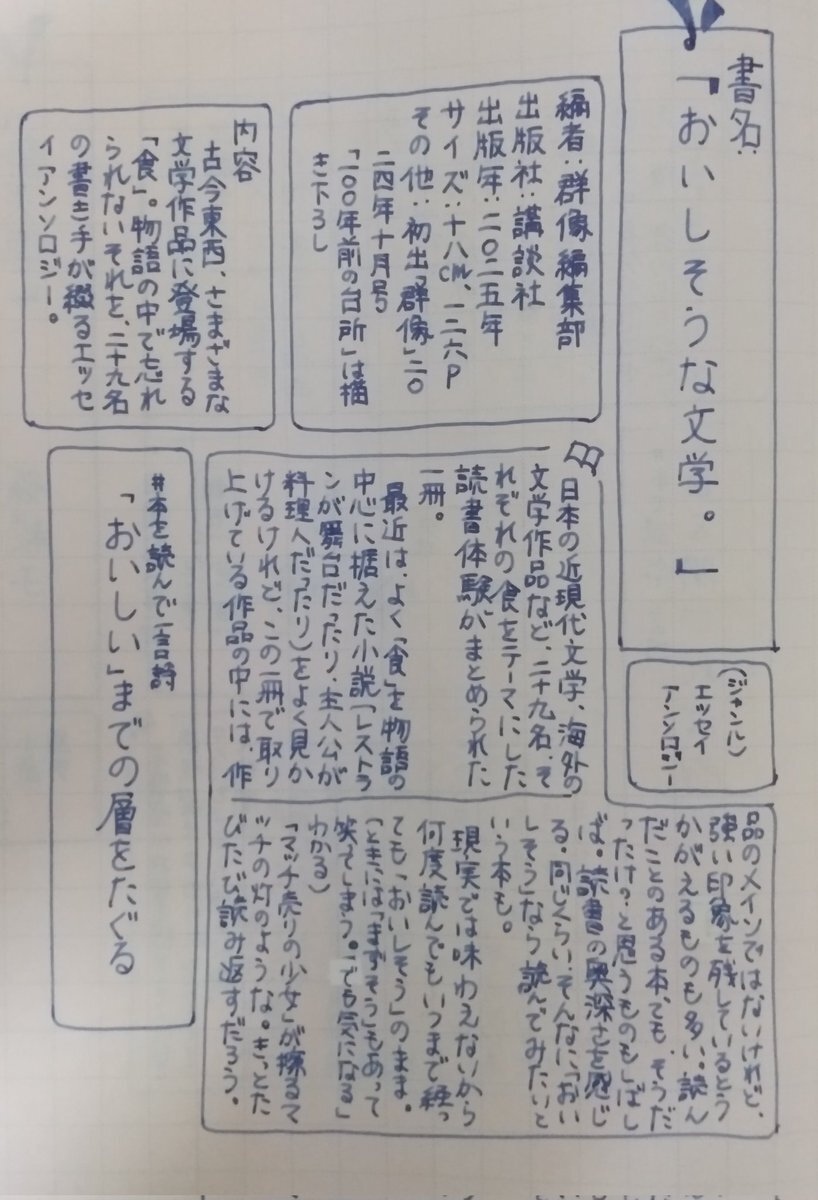 書名:
「おいしそうな文学。」
(ジャンル)
エッセイ
アンソロジー
編者:群像編集部
出版社:講談社
出版年:二〇二五年
サイズ:十八cm、一三六P
その他:初出「群像」二〇
二四年十月号
「一〇〇年前の台所」は描
き下ろし
内容
古今東西、さまざまな
文学作品に登場する
「食」。物語の中で忘れ
られないそれを、二十九名
の書き手が綴るエッセ
イアンソロジー。
日本の近現代文学、海外の
文学作品など、二十九名、そ
れぞれの「食をテーマにした
読書体験」がまとめられた
一冊。
最近は、よく「食」を物語の
中心に据えた小説(レストラ
ンが舞台だったり、主人公が
料理人だったり)をよく見か
けるけれど、この一冊で取り
上げている作品の中には、作
品のメインではないけれど、
強い印象を残しているとう
かがえるものも多い。読ん
だことのある本、でも、そうだ
ったけ?と思うものもしばし
ば。読書の奥深さを感じ
る。同じくらい、そんなに「おい
しそう」なら読んでみたいと
いう本も。
現実では味わえないから
何度読んでもいつまで経っ
ても「おいしそう」のまま。
(ときには「まずそう」もあって
笑ってしまう。「でも気になる」
わかる)
「マッチ売りの少女」が擦るマ
ッチの灯のような。きっとた
びたび読み返すだろう。
#本を読んで一言詩
「おいしい」までの層をたぐる